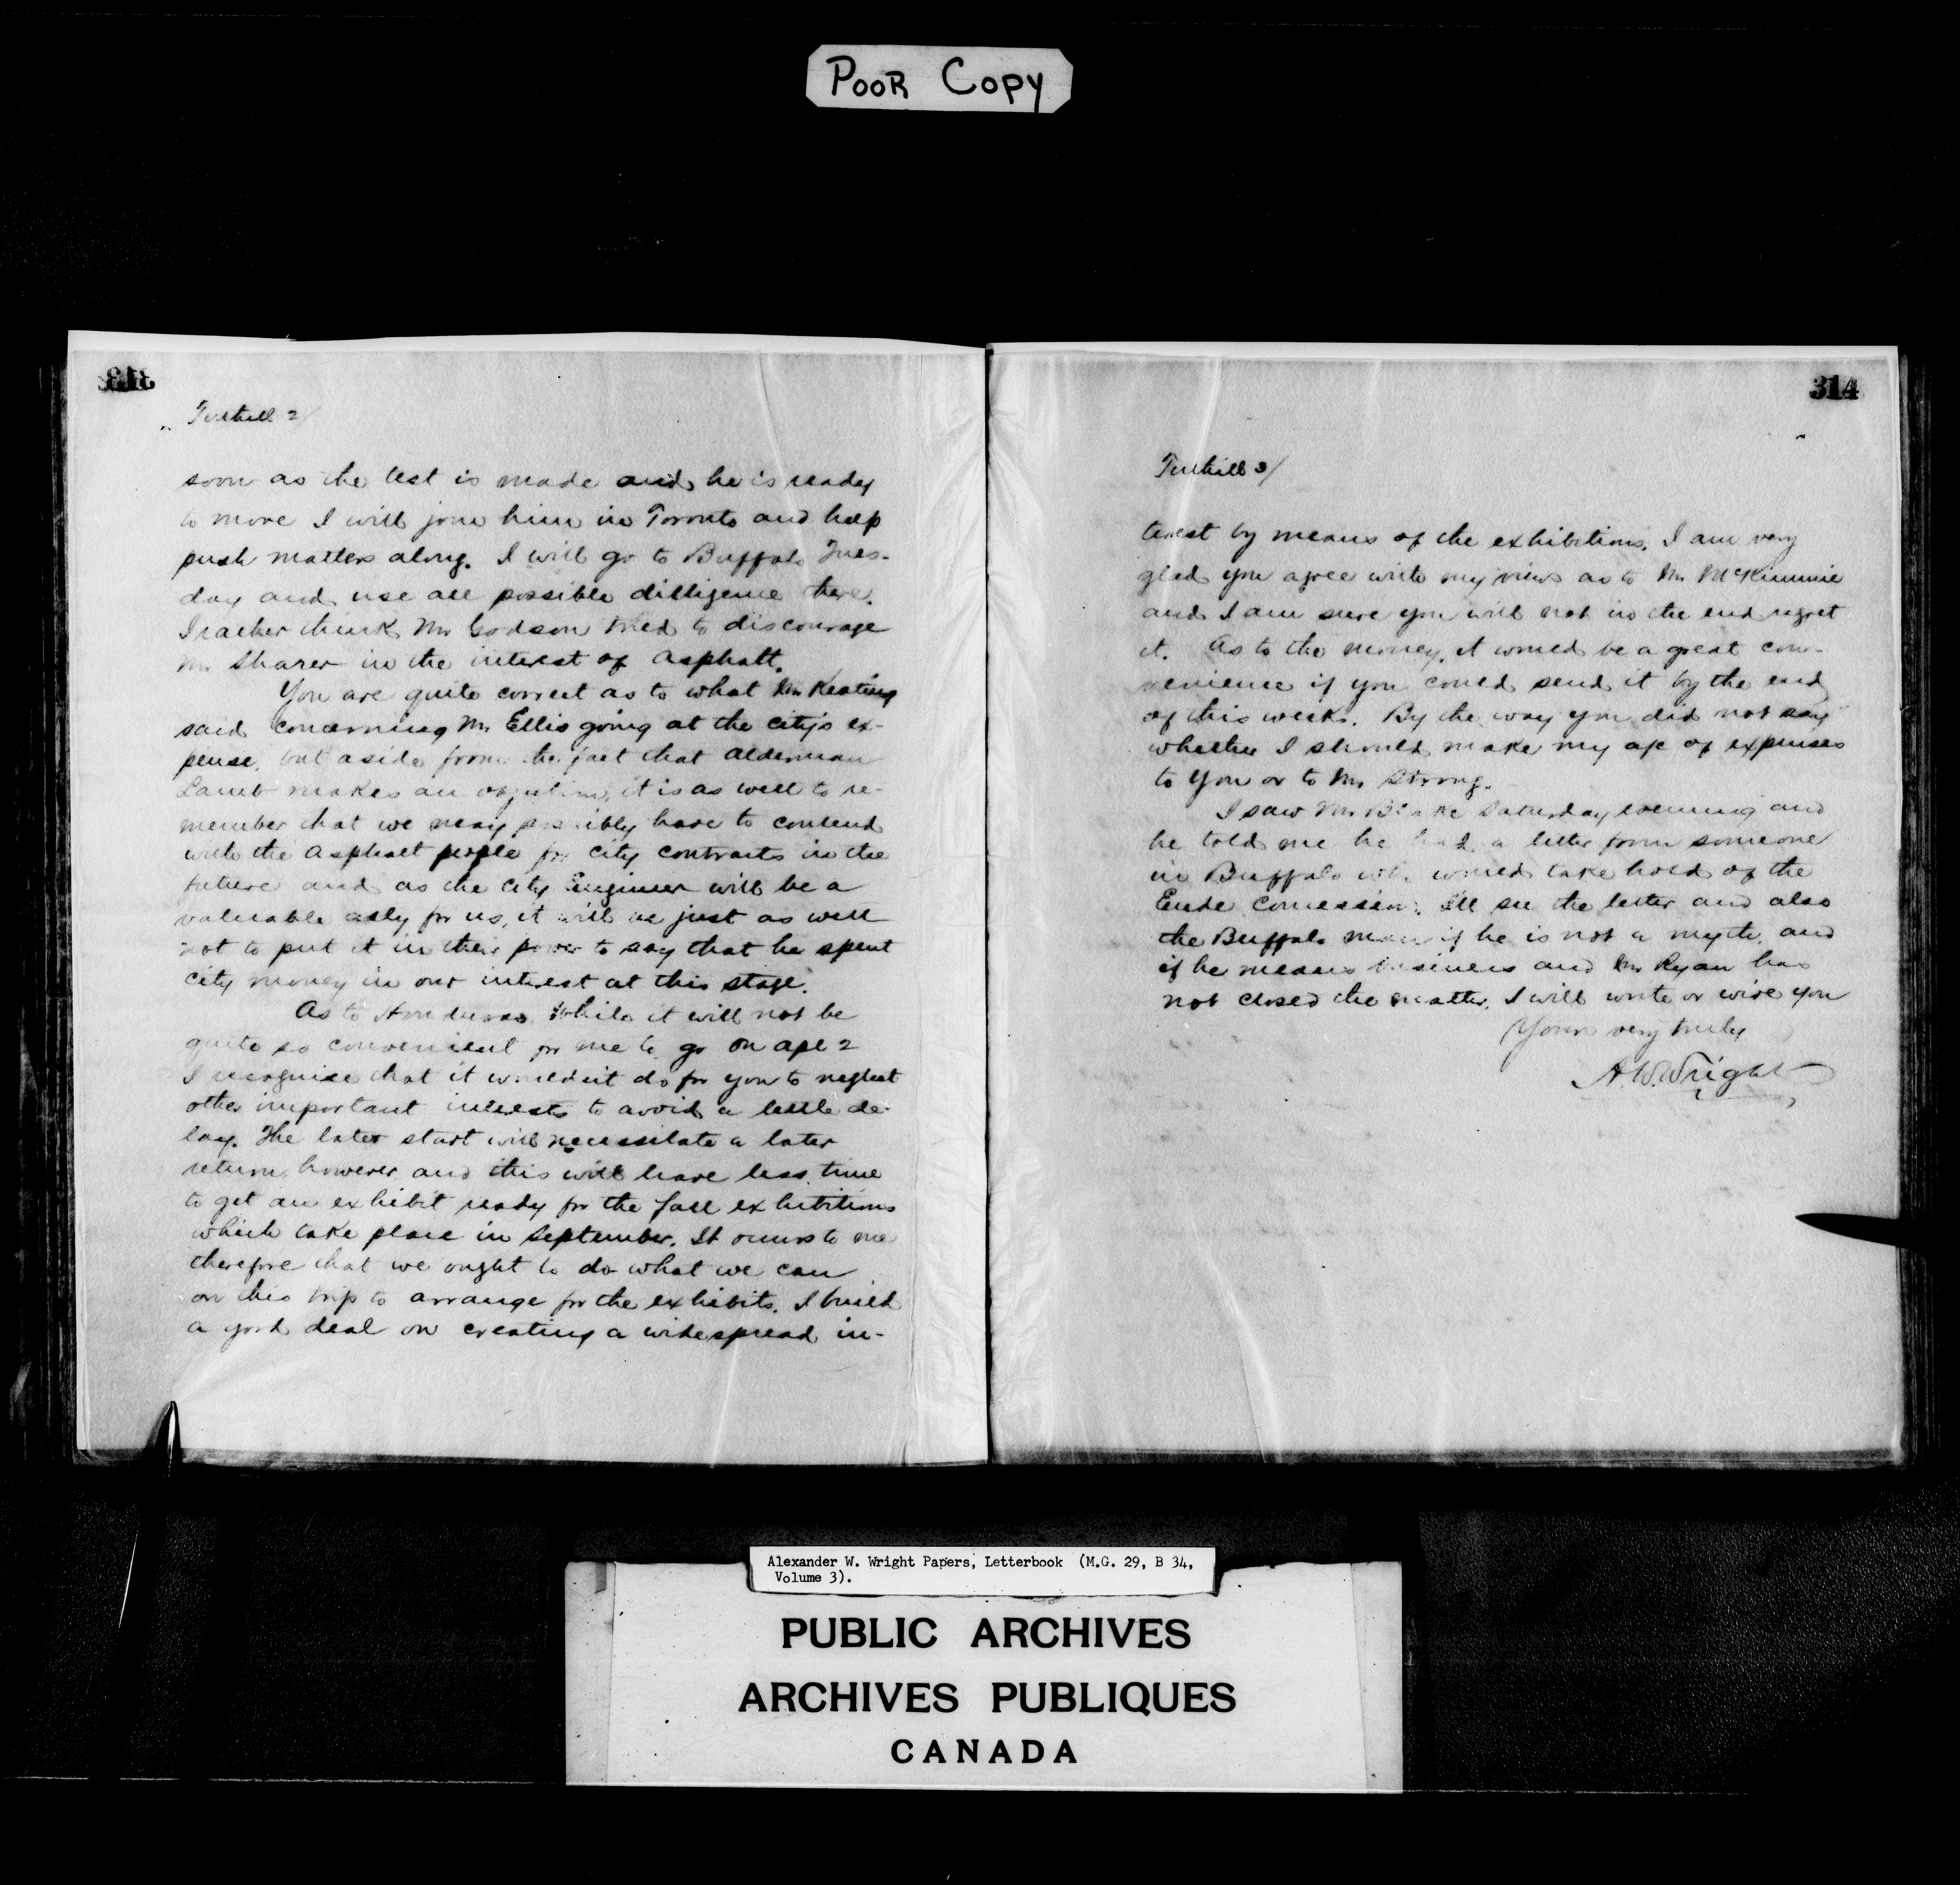 POOR COPY
313
Tuthill 2/
soon as the test is made and he is ready
to move I will join him in Toronto and help
push matters along. I will go to Buffalo Tues-
day and use all possible dilligence there.
I rather think Mr Godson tried to discourage
Mr Sharer in the interest of Asphalt.
You are quite correct as to what Mr Keating
said concerning Mr Ellis going at the city's ex-
pense, but aside from the fact that Alderman
Lamb makes an objection, it is as well to re-
member that we may possibly have to contend
with the Asphalt people for city contracts in the
future and as the City Engineer will be a
valuable ally for us, it will be just as well
not to put it in their power to say that he spent
city money in our interest at this stage.
As to Honduras, while it will not be
quite so convenient for me to go on apl 2
I recognise that it wouldn't do for you to neglect
other important interests to avoid a little de-
lay. The later start will necessitate a later
return, however and this will leave less time
to get an exhibit ready for the fall exhibitions
which take place in September. It occurs to me
therefore that we ought to do what we can
on this trip to arrange for the exhibits. I build
a good deal on creating a widespread in-
314
Tuthill 3/
terest by means of the exhibitions. I am very
glad you agree with my views as to Mr McKimmie
and I am sure you will not in the end regret
it. As to the money, it would be a great con-
venience if you could send it by the end
of this week. By the way you did not say
whether I should make my a/c of expenses
to you or to Mr Strong.
I saw Mr Blake Saturday evening and
he told me he had a letter from someone
in Buffalo who would take hold of the
Concession. I'll see the letter and also
the Buffalo man if he is not a myth, and
if he means business and Mr Ryan has
not closed the matter, I will write or wire you
Yours very truly
A.W. Wright
Alexander W. Wright Papers, Letterbook (M.G. 29, B 34,
Volume 3).
PUBLIC ARCHIVES
ARCHIVES PUBLIQUES
CANADA